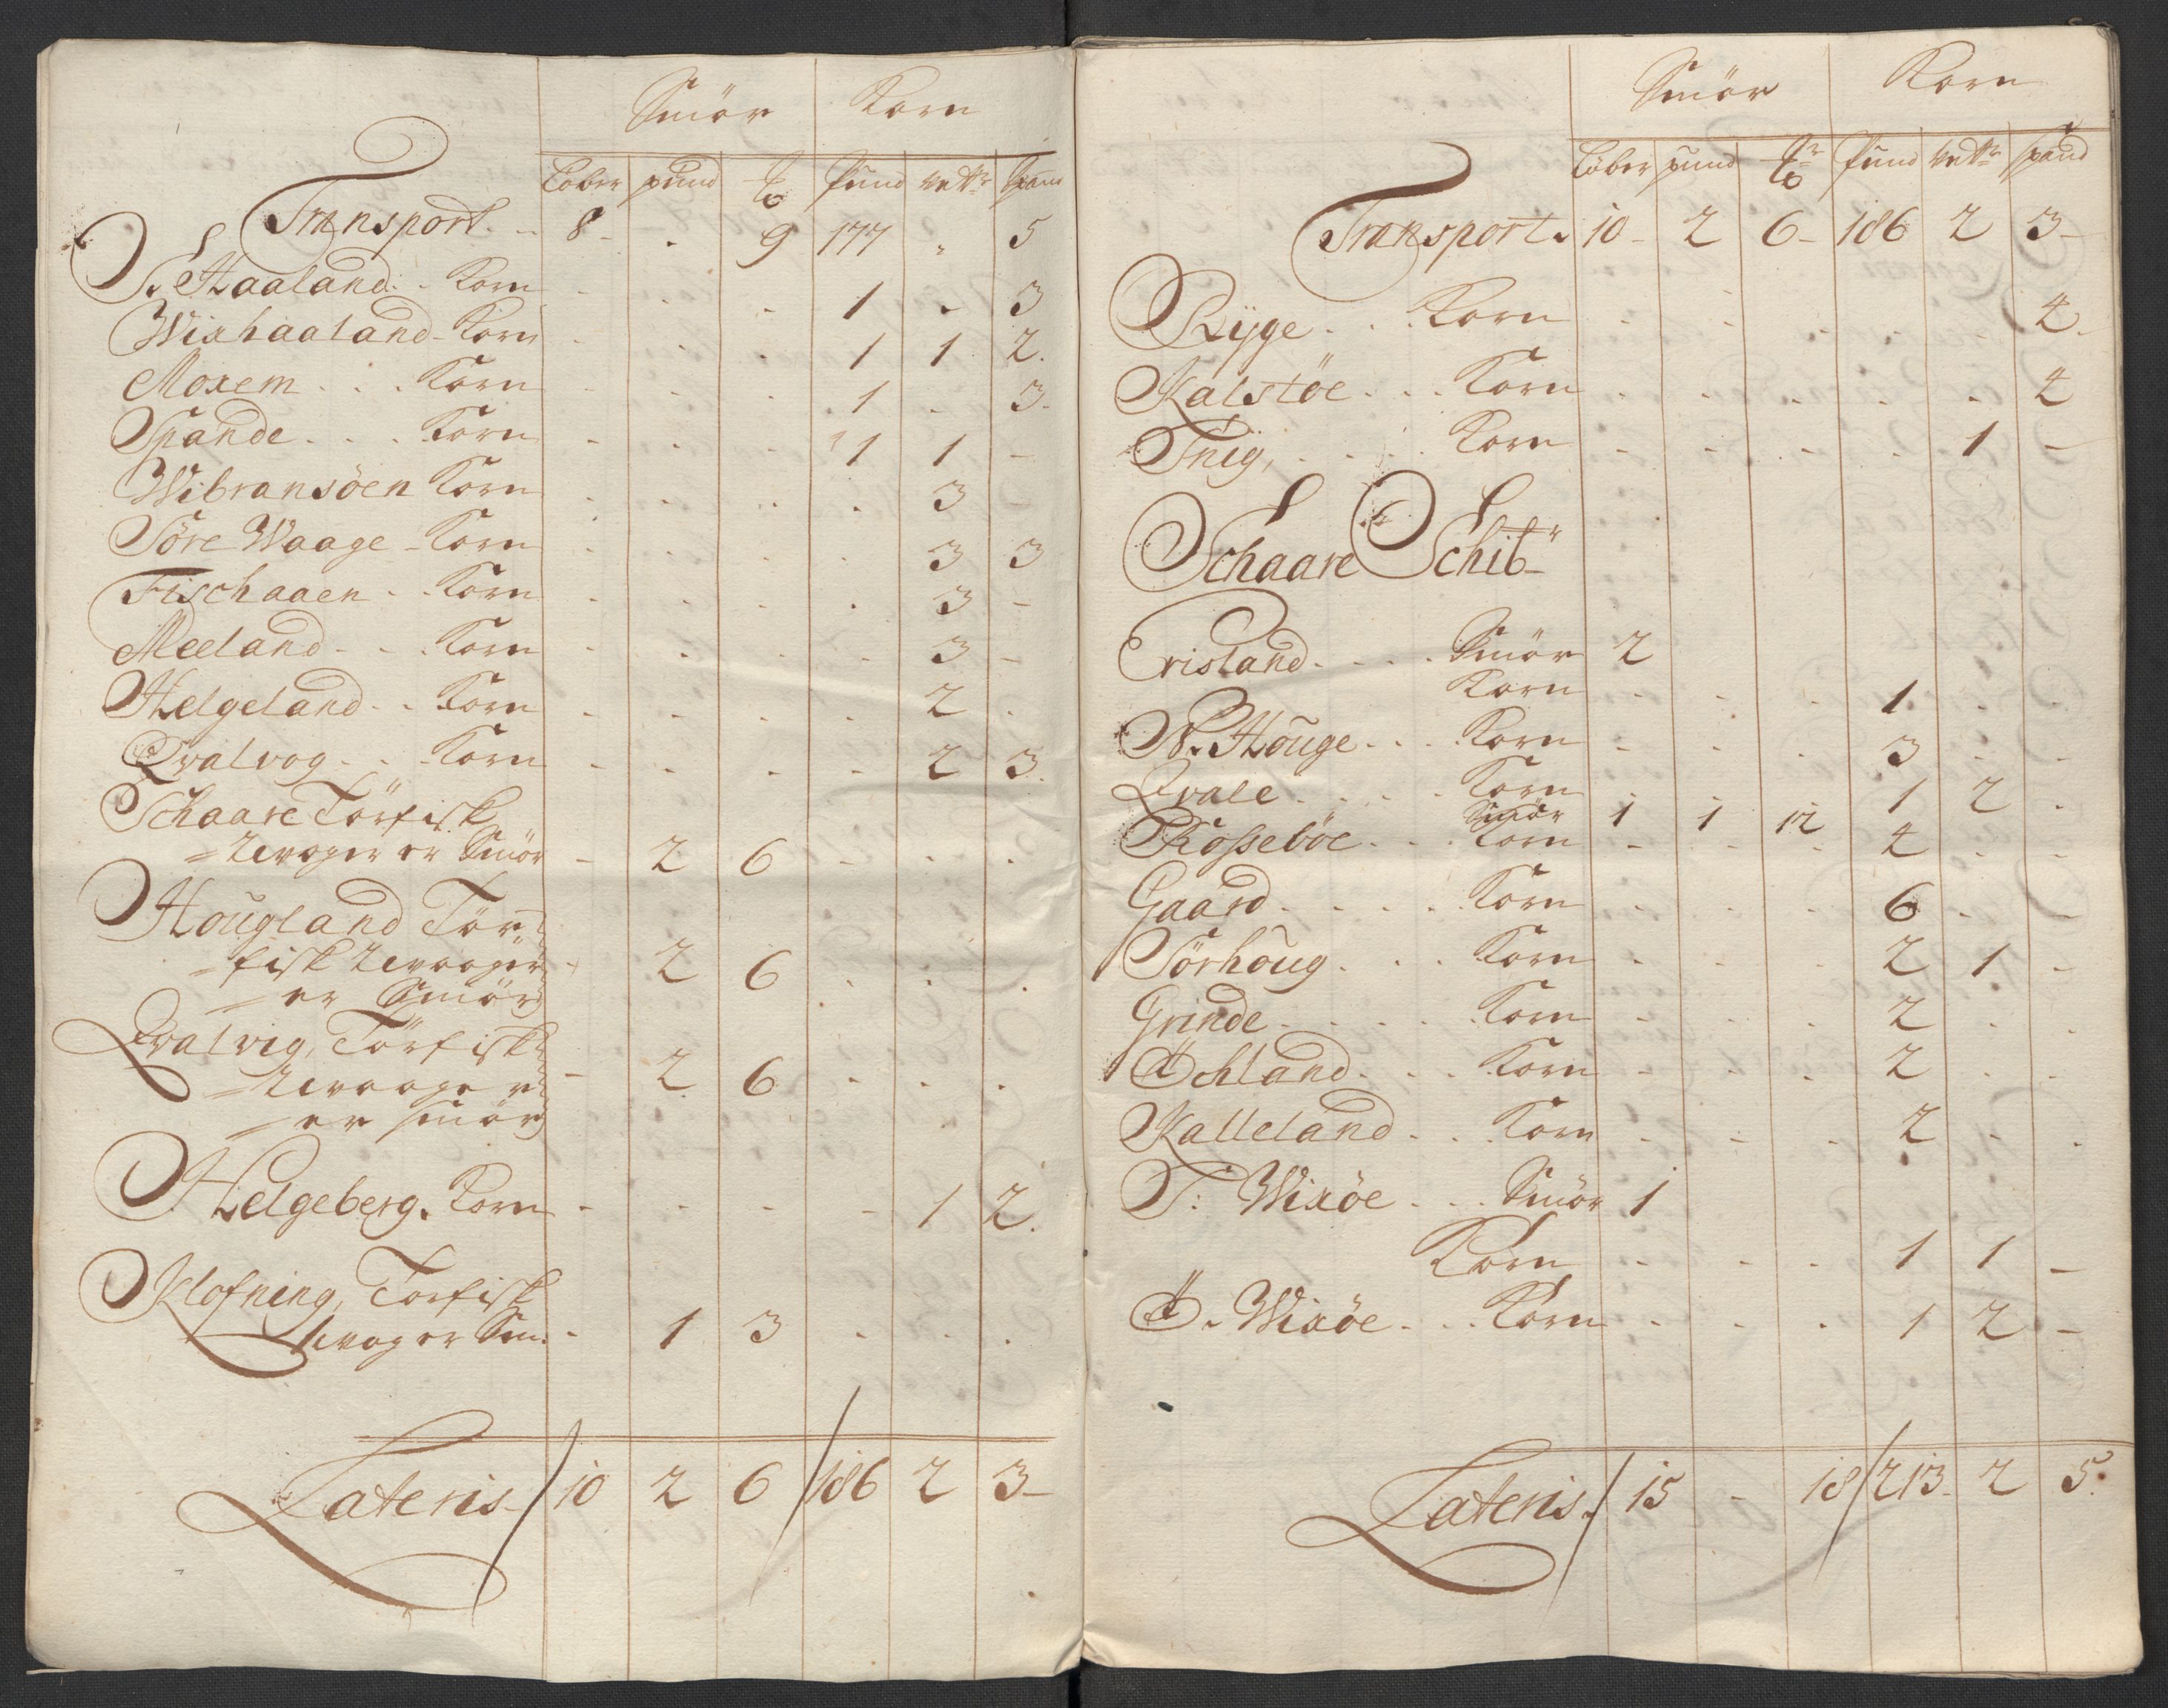 Smör Korn
Löber pund ℔ Pund vettr Spand
Transport. 8 - . 9 177 „ 5
S. Haaland. Korn - . . - 1 - 3
Wixhaaland - Korn - . . 1 1 2.
Moxem . . . Korn - . . . 1 . 3.
Spande . . . Korn - . . . 1 1 -
Wibransöen Korn . . . . 3 -
Söre Waage - Korn . . . . 3 3
Fischaaen . . Korn . . . . 3 -
Meeland . . . Korn - . . . 3 -
Helgeland . . Korn - . . . 2 .
Qvalvog . . . Korn - . . . 2 3.
Schaare Törfisk
= 2 waager er Smör - 2 6 . . .
Hougland Tör
= fisk 2 waager - 2 6 . . .
= er Smör
Qvalvig, Törfisk
= 2 waager - 2 6 . . .
= er smör
Helgeberg. Korn - . . . 1 2.
Klofning, Torfisk
1 waag er Sm: - 1 3 . . .
Lateris 10 2 6 186 2 3-
Smör Korn
Löber pund ℔r Pund vettr spand
Transport. 10 - 2 6 - 186 2 3 -
Rÿge . . . Korn - . . . . 4.
Kalstöe . . . Korn . . . . . 4
Snig, . . . . Korn - . . . 1 -
Schaare Schib"
Crisland . . . . Smör 2
Korn - . . 1 . .
N. Houge . . . Korn - . . 3 . .
Qvale . . . . Korn . . . 1 2 .
Smör 1 1 12
Rosseböe . . . Korn - . . 4 . .
Gaard . . . . Korn - . . 6 . -
Sörhoug . . . Korn - . . 2 1 -
Grinde . . . . Korn - . . 2 . .
Öchland . . . Korn - . . 2 . .
Kalleland . . . Korn - . . 2 . .
S: Wixöe . . . Smör 1
Korn - . . 1 1 -
Ö. Wixöe . . . Korn - . . 1 2 -
Lateris. 15 - 18 213 - 2 5.